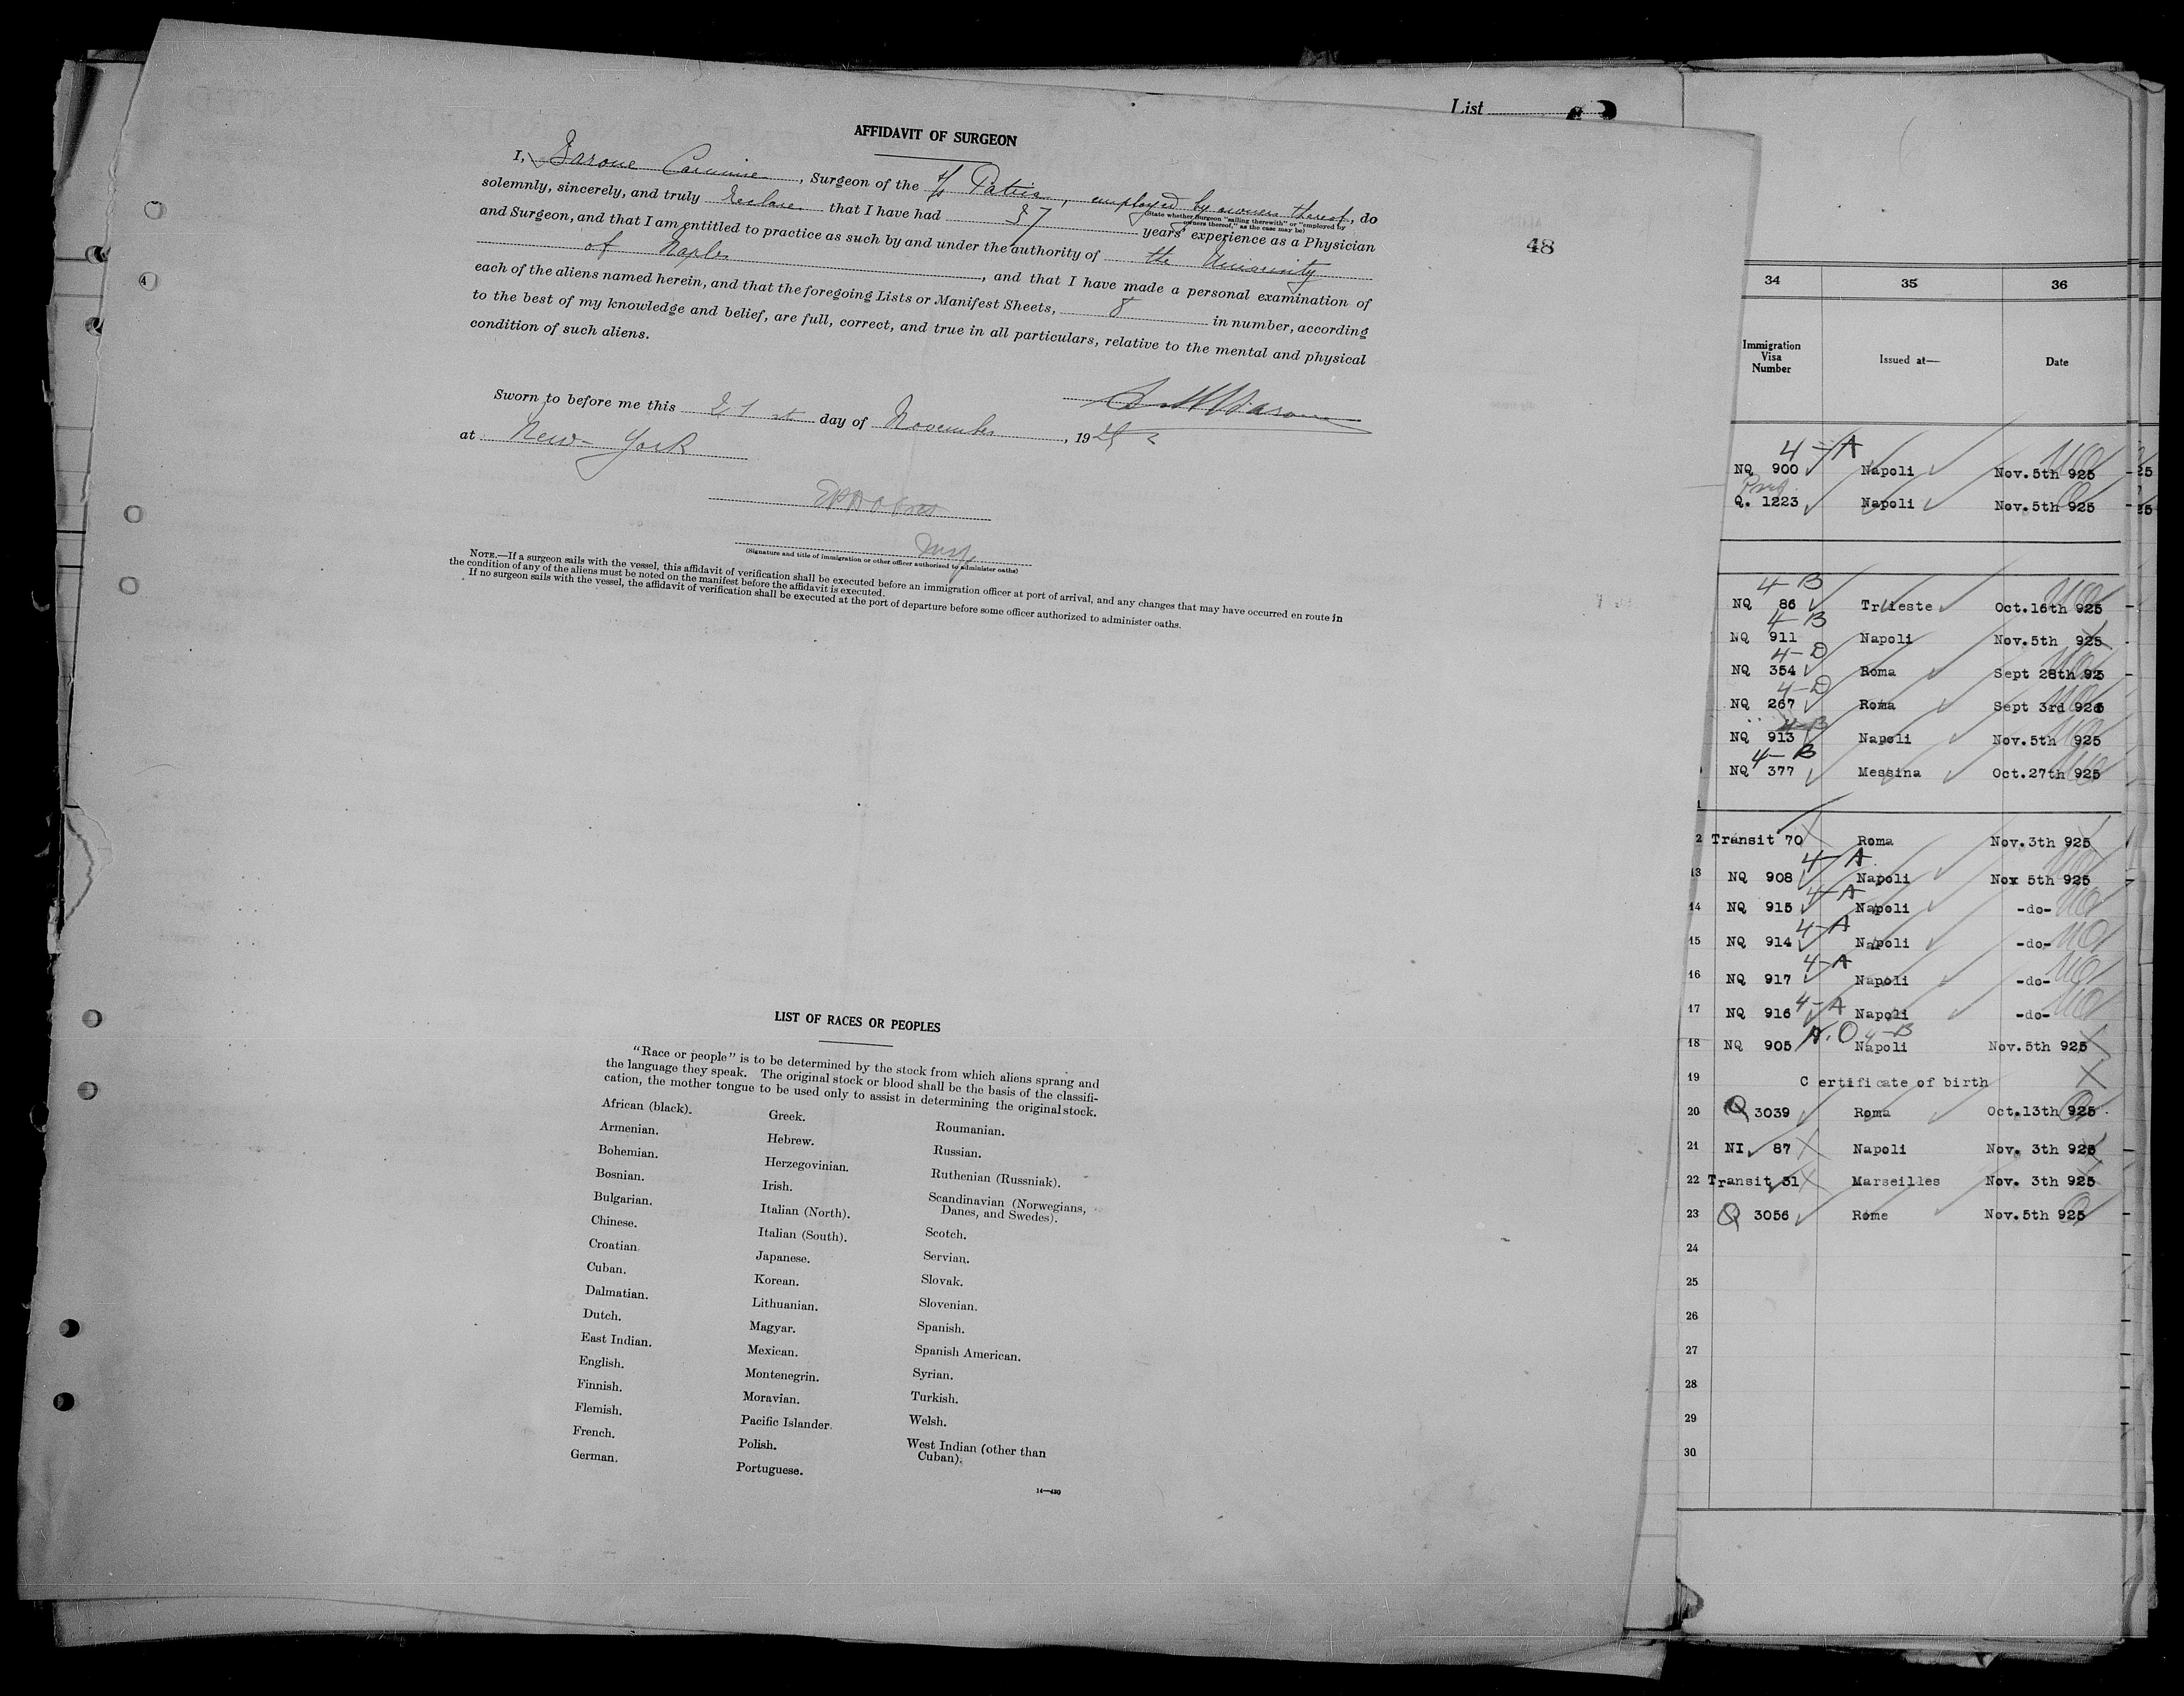 List
AFFIDAVIT OF SURGEON
I, Barone Carmine, Surgeon of the s/s Patria, employed by owners thereof, do
(State whether Surgeon "sailing therewith" or "employed by
owners thereof," as the case may be)
solemnly, sincerely, and truly declare that I have had 37 years' experience as a Physician
and Surgeon, and that I am entitled to practice as such by and under the authority of the University
of Naples, and that I have made a personal examination of
each of the aliens named herein, and that the foregoing Lists or Manifest Sheets, 8 in number, according
to the best of my knowledge and belief, are full, correct, and true in all particulars, relative to the mental and physical
condition of such aliens.
Sworn to before me this 21st day of November, 1925
at New York
Insp.
(Signature and title of immigration or other officer authorized to administer oaths)
NOTE.—If a surgeon sails with the vessel, this affidavit of verification shall be executed before an immigration officer at port of arrival, and any changes that may have occurred en route in
the condition of any of the aliens must be noted on the manifest before the affidavit is executed.
If no surgeon sails with the vessel, the affidavit of verification shall be executed at the port of departure before some officer authorized to administer oaths.
LIST OF RACES OR PEOPLES
"Race or people" is to be determined by the stock from which aliens sprang and
the language they speak. The original stock or blood shall be the basis of the classifi-
cation, the mother tongue to be used only to assist in determining the original stock.
African (black).
Armenian.
Bohemian.
Bosnian.
Bulgarian.
Chinese.
Croatian.
Cuban.
Dalmatian.
Dutch.
East Indian.
English.
Finnish.
Flemish.
French.
German.
Greek.
Hebrew.
Herzegovinian.
Irish.
Italian (North).
Italian (South).
Japanese.
Korean.
Lithuanian.
Magyar.
Mexican.
Montenegrin.
Moravian.
Pacific Islander.
Polish.
Portuguese.
Roumanian.
Russian.
Ruthenian (Russniak).
Scandinavian (Norwegians,
Danes, and Swedes).
Scotch.
Servian.
Slovak.
Slovenian.
Spanish.
Spanish American.
Syrian.
Turkish.
Welsh.
West Indian (other than
Cuban).
14—430
4
48
34 35 36
Immigration
Visa
Number
Issued at—
Date
4-A
NQ 900 Napoli Nov.5th 925
Q. 1223 Napoli Nov.5th 925
4-B
NQ 86 Trieste Oct.16th 925
4-B
NQ 911 Napoli Nov.5th 925
4-D
NQ 354 Roma Sept 28th 925
4-D
NQ 267 Roma Sept 3rd 925
4-B
NQ 913 Napoli Nov.5th 925
4-B
NQ 377 Messina Oct.27th 925
1
2 Transit 70 Roma Nov.3th 925
4-A
13 NQ 908 Napoli Nox 5th 925
4-A
14 NQ 915 Napoli -do-
4-A
15 NQ 914 Napoli -do-
4-A
16 NQ 917 Napoli -do-
4-A
17 NQ 916 Napoli -do-
N.O 4-B
18 NQ 905 Napoli Nov.5th 925
19 C ertificate of birth
20 Q 3039 Roma Oct.13th 925
21 NI 87 Napoli Nov. 3th 925
22 Transit 51 Marseilles Nov. 3th 925
23 Q 3056 Rome Nov.5th 925
24
25
26
27
28
29
30